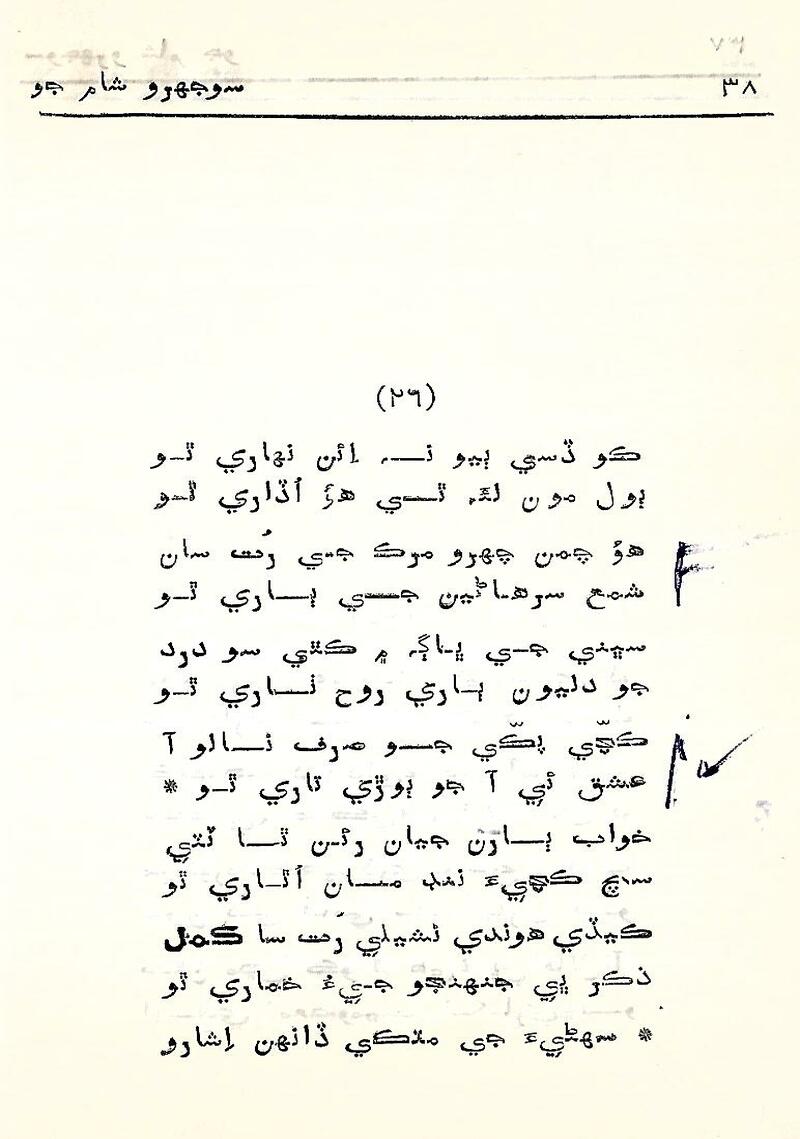 ۳۸
سوجهرو شام جو
(۲٦)
ڪو ڏسي پيو نہ ائن نهاري ٿو
ٻول مون لئہ ٿي هوُ اُڏاري ٿو
هوُ چمن چهرو مرڪ جي رُت سان
شمع سرهاڻين جي ٻاري ٿو
سڀني جي ڀاڳہ ۾ ڪٿي سو درد
جو دليون ٻاري روح ٺاري ٿو
ڪچّي پڪّي جو صرف نالو آ
عشق ئي آ جو ٻوڙي تاري ٿو *
خواب ٻارن جيان رئن ٿا ٿي
سچ ڪچيءَ ننڊ مان اُٿاري ٿو
ڪيڏي هوندي نشيلي رُت سا ڪمل
ذڪر ئي جنهنجو جيءُ خماري ٿو
* سهڻيءَ جي مٽڪي ڏانهن اِشارو